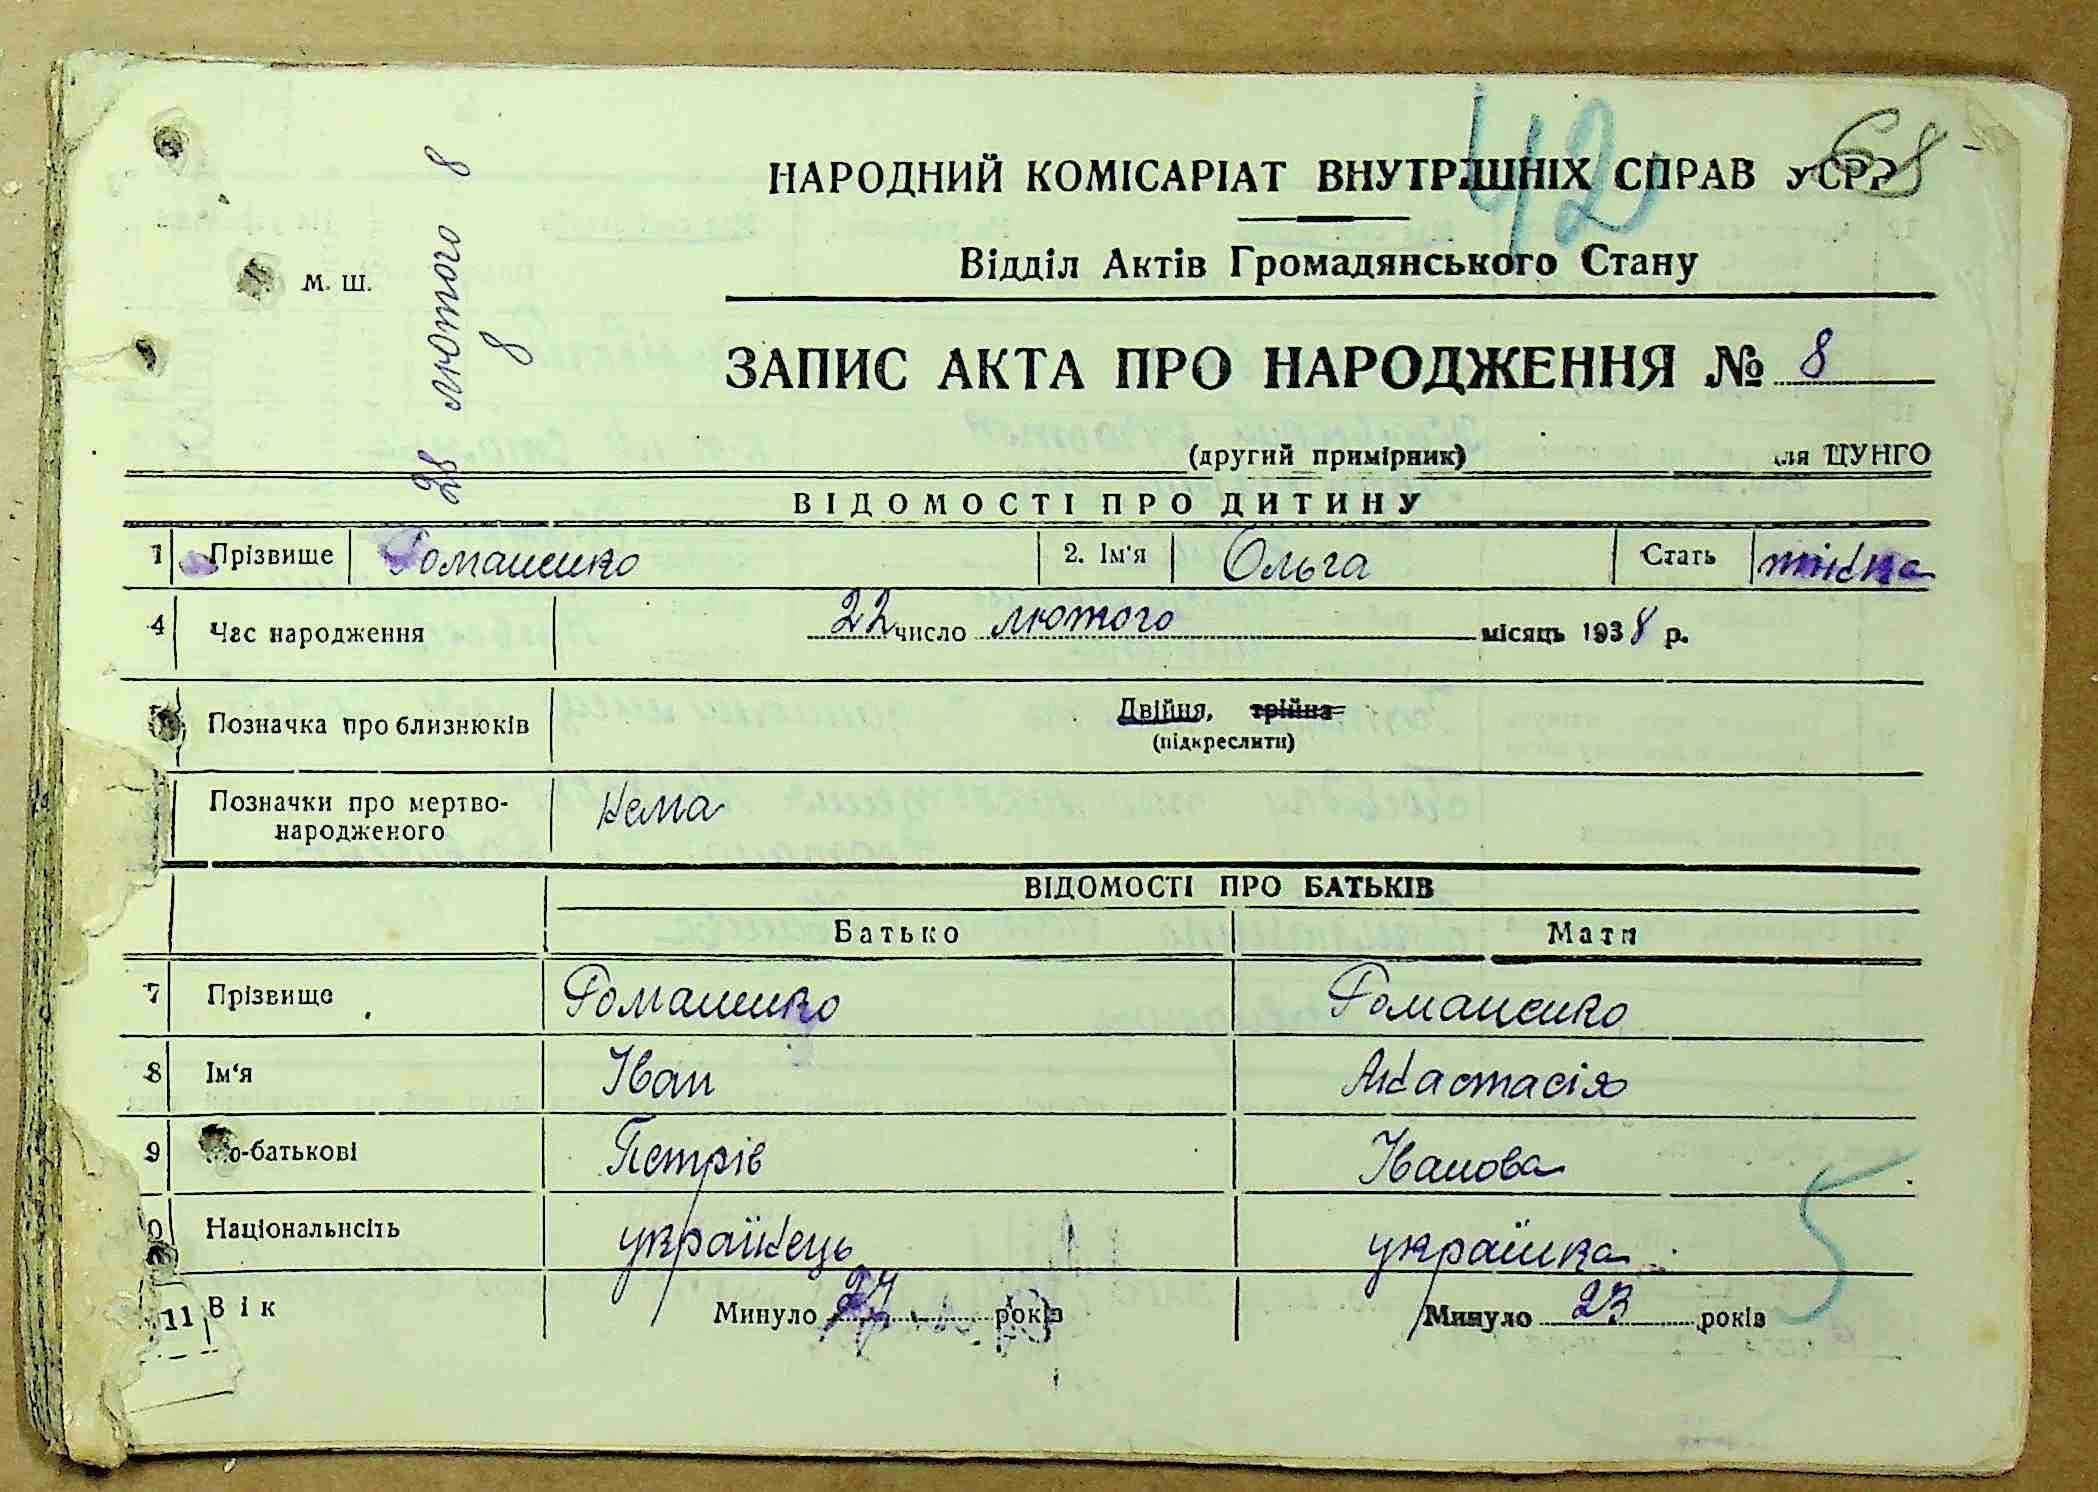 42
68
НАРОДНИЙ КОМІСАРІАТ ВНУТРІШНІХ СПРАВ УСРР
Відділ Актів Громадянського Стану
М. Ш.
28 лютого 8
8
ЗАПИС АКТА ПРО НАРОДЖЕННЯ № 8
(другий примірник) для ЦУНГО
ВІДОМОСТІ ПРО ДИТИНУ
1 Прізвище Романенко 2. Ім'я Ольга Стать жіноча
4 Час народження 22 число лютого місяць 1938 р.
Позначка про близнюків Двійня, трійня
(підкреслити)
Позначки про мертво-
народженого
нема
ВІДОМОСТІ ПРО БАТЬКІВ
Батько Мати
7 Прізвище Романенко Романенко
8 Ім'я Іван Анастасія
9 По-батькові Петрів Іванова
5
Національність українець українка
11 Вік Минуло років Минуло 23 років